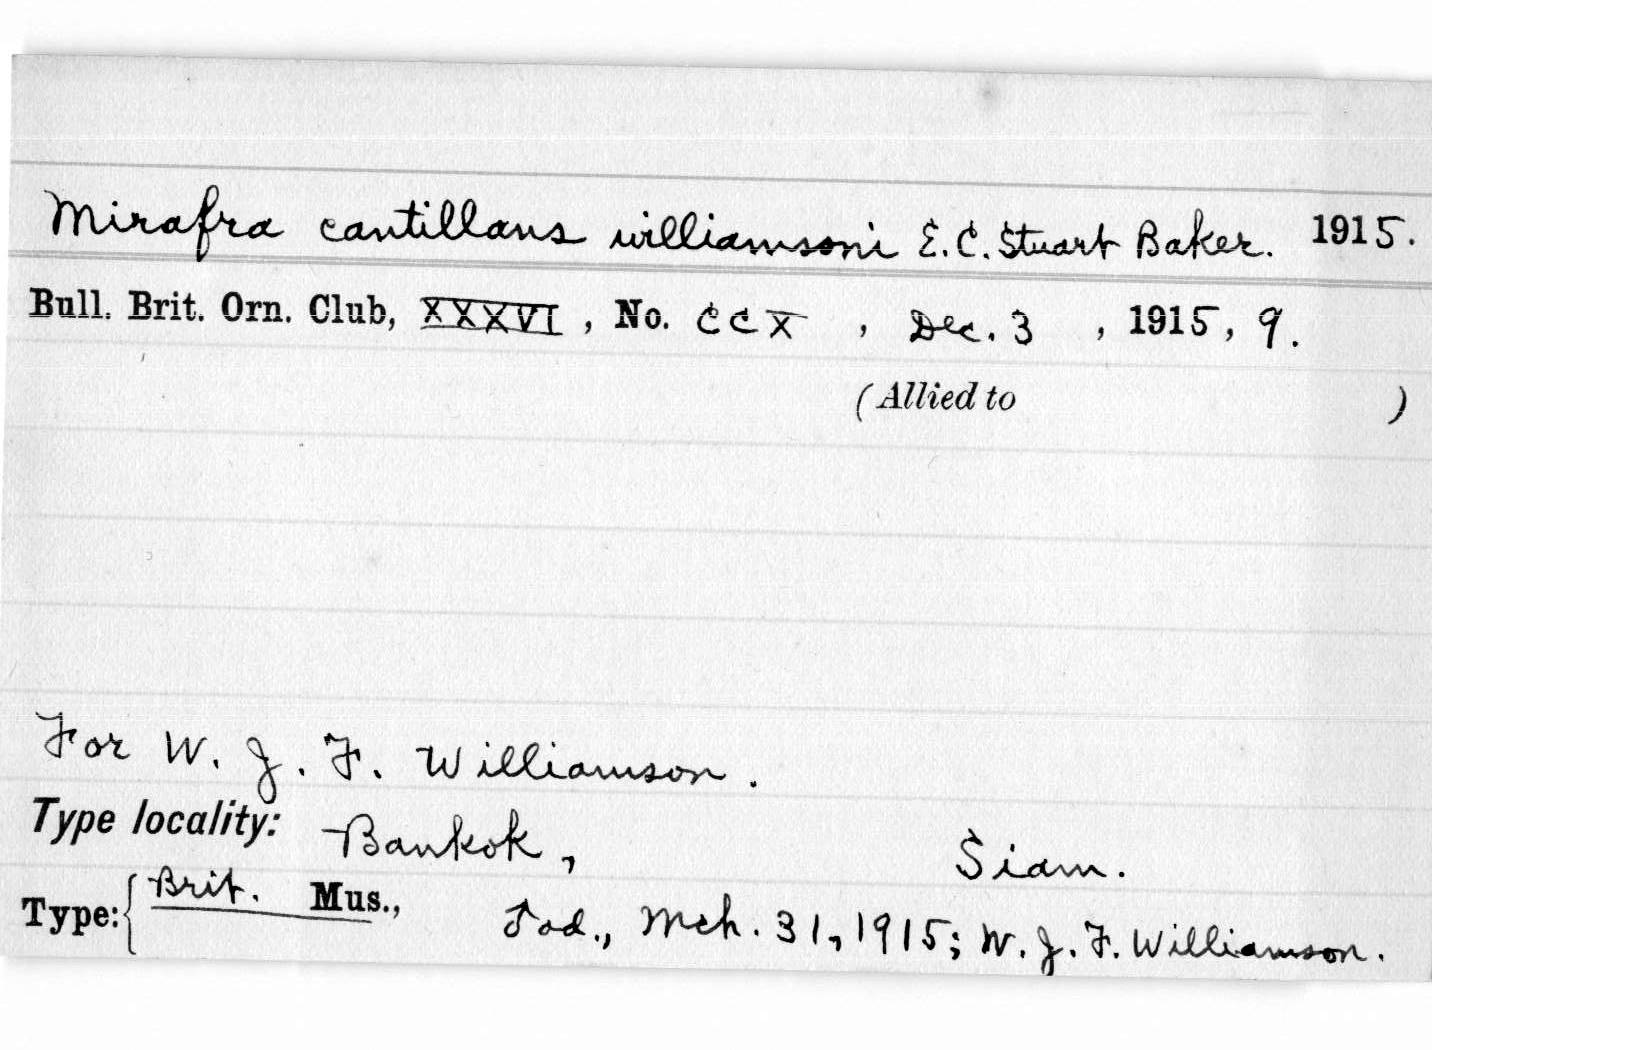 Mirafra cantillans williamsoni E. C. Stuart Baker. 1915.
Bull. Brit. Orn. Club, XXXVI, No. CCX, Dec. 3, 1915, 9.
(Allied to )
For W. J. F. Williamson.
Type locality: Bankok, Siam.
Type: { Brit. Mus., ♂ad., Mch. 31, 1915; W. J. F. Williamson.